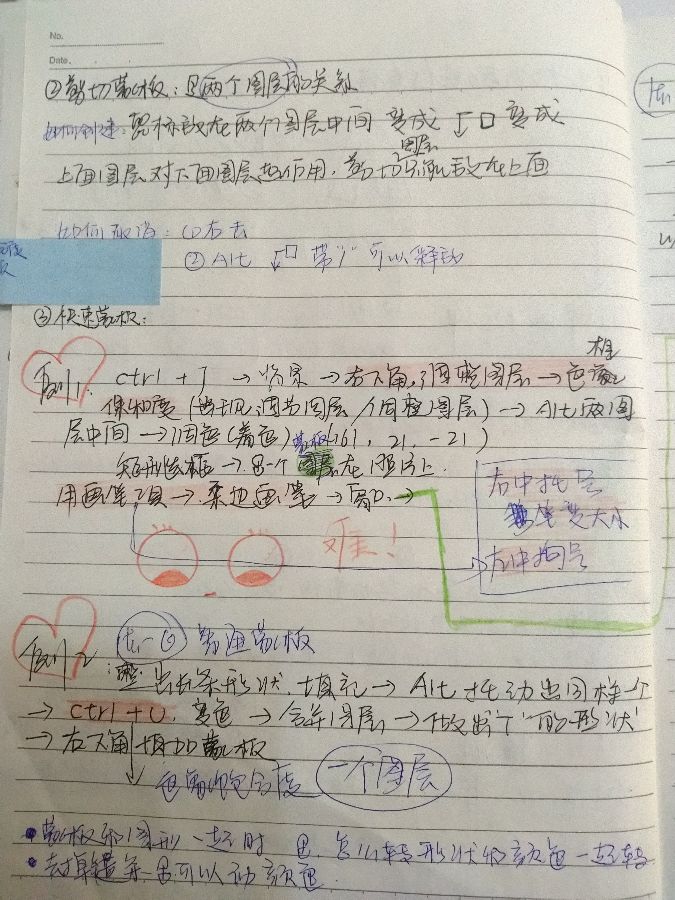 No.
Date.
②剪切蒙板：是两个图层的关系
如何创建：鼠标放在两个图层中间 变成 ↓□ 变成
图层
上面图层对下面图层起作用，剪切 放在上面
如何取消：①右击
②Alt ↓□ 带"/"可以释放
③快速蒙板：
例1. ctrl + J → 背景 → 右下角，调整图层 → 色相
保和度（出现，调节图层/调整图层）→ Alt 两图
层中间 → 调色（着色） , 21, -21）
蒙板
矩形选框 → 另一个 在照片上
用画笔工具 → 柔边画笔 →
右中括号
笔变大小
左中括号
难！
例2 普通蒙板
出长条形状，填充 → Alt 拖动出同样一个
→ ctrl + U，变色 → 合并图层 → 做出个"的形状"
→ 右下角添加蒙板
色 饱合度 一个图层
蒙板和图形一起时 转形状的颜色一起转
去掉链条 可以动颜色